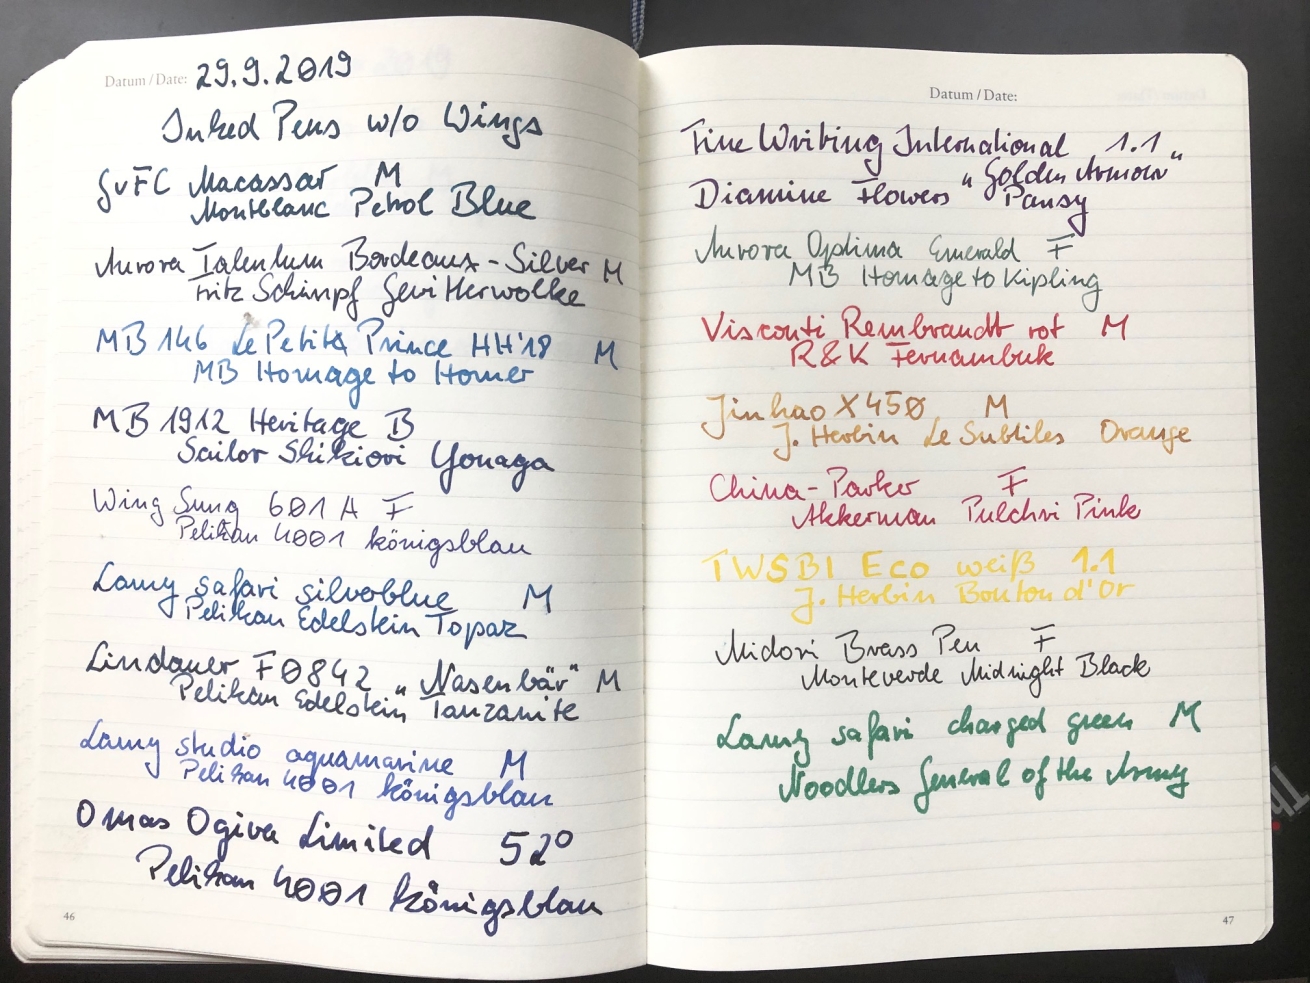 Datum/Date: 29.9.2019
Inked Pens w/o Wings
GvFC Macassar M
Montblanc Petrol Blue
Aurora Talentum Bordeaux-Silver M
Fritz Schimpf Gewitterwolke
MB 146 Le Petit Prince HH'18 M
MB Homage to Homer
MB 1912 Heritage B
Sailor Shikiori Yonaga
Wing Sung 601 A F
Pelikan 4001 königsblau
Lamy safari silverblue M
Pelikan Edelstein Topaz
Lindauer F0842 „Nasenbär" M
Pelikan Edelstein Tanzanite
Lamy studio aquamarine M
Pelikan 4001 königsblau
Omas Ogiva Limited 52°
Pelikan 4001 königsblau
46
Datum/Date:
Fine Writing International 1.1
„Golden Armour"
Diamine Flowers Pansy
Aurora Optima Emerald F
MB Homage to Kipling
Visconti Rembrandt rot M
R&K Fernambuk
Jinhao X450 M
J. Herbin Le Subtiles Orange
China-Parker F
Akkerman Pulchri Pink
TWSBI Eco weiß 1.1
J. Herbin Bouton d'Or
Midori Brass Pen F
Monteverde Midnight Black
Lamy safari charged green M
Noodlers General of the Army
47